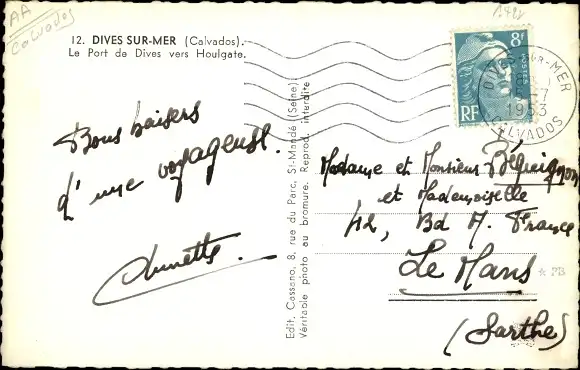 AA
Calvados
12. DIVES SUR-MER (Calvados).
Le Port de Dives vers Houlgate.
8F
POSTES
RF
DIVES-SUR-MER
5-7
1953
CALVADOS
Bons baisers
d'une voyageuse.
Annette.
Edit. Cassano, 8, rue du Parc, St-Mandé (Seine)
Véritable photo au bromure. Reprod. interdite
Madame et Monsieur
et Mademoiselle
42, Bd A. France
Le Mans
(Sarthe)
* PB